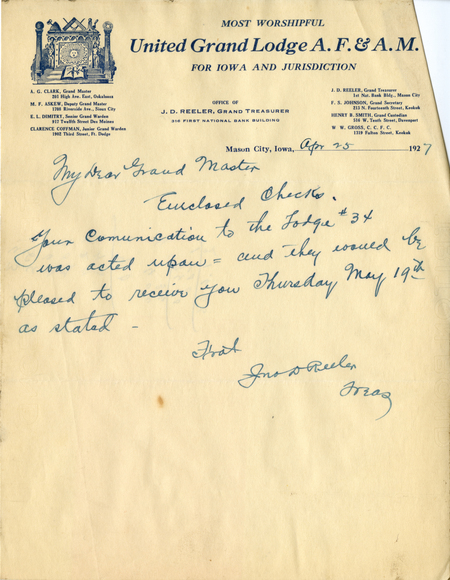 MOST WORSHIPFUL
United Grand Lodge A. F. & A. M.
FOR IOWA AND JURISDICTION
A. G. CLARK, Grand Master
205 High Ave. East, Oskaloosa
M. F. ASKEW, Deputy Grand Master
1705 Riverside Ave., Sioux City
E. L. DIMITRY, Senior Grand Warden
817 Twelfth Street Des Moines
CLARENCE COFFMAN, Junior Grand Warden
1002 Third Street, Ft. Dodge
OFFICE OF
J. D. REELER, GRAND TREASURER
316 FIRST NATIONAL BANK BUILDING
J. D. REELER, Grand Treasurer
1st Nat. Bank Bldg., Mason City
F. S. JOHNSON, Grand Secretary
213 N. Fourteenth Street, Keokuk
HENRY B. SMITH, Grand Custodian
516 W. Tenth Street, Davenport
W. W. GROSS, C. C. F. C.
1319 Fulton Street, Keokuk
Mason City, Iowa, Apr 25 1927
My Dear Grand Master
Enclosed Checks.
Your Comunication to the Lodge #34
was acted upon = and they would be
pleased to receive you Thursday May 19th
as stated -
Frat
Jno D Reeler
Treas